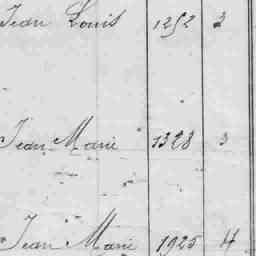 Jean Louis 1252 3
Jean Marie 1328 3
Jean Marie 1925 4